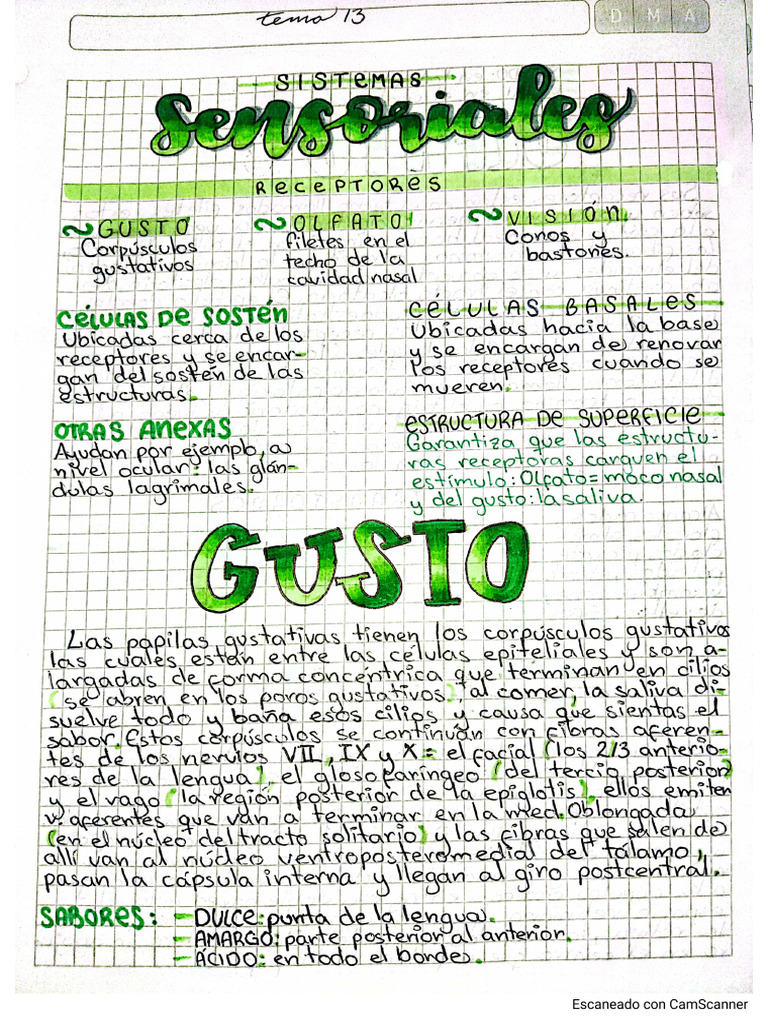 tema 13
D M A
SISTEMAS
Sensoriales
RECEPTORES
~GUSTO
Corpúsculos
gustativos
~OLFATO
filetes en el
techo de la
cavidad nasal
~VISIÓN
Conos y
bastones.
CÉLULAS DE SOSTÉN
Ubicadas cerca de los
receptores y se encar-
gan del sostén de las
estructuras.
CÉLULAS BASALES
Ubicadas hacia la base
y se encargan de renovar
los receptores cuando se
mueren.
OTRAS ANEXAS
Ayudan por ejemplo, a
nivel ocular: las glán-
dulas lagrimales.
ESTRUCTURA DE SUPERFICIE
Garantiza que las estructu-
ras receptoras carguen el
estímulo: Olfato = moco nasal
y del gusto: la saliva.
GUSTO
Las papilas gustativas tienen los corpúsculos gustativos
las cuales están entre las células epiteliales y son a-
largadas de forma concéntrica que terminan en cilios
(se abren en los poros gustativos), al comer, la saliva di-
suelve todo y baña esos cilios y causa que sientas el
sabor. Estos corpúsculos se continúan con fibras aferen-
tes de los nervios VII, IX y X = el facial (los 2/3 anterio-
res de la lengua), el glosofaríngeo (del tercio posterior)
y el vago (la región posterior de la epiglotis), ellos emiten
v. aferentes que van a terminar en la med. Oblongada
(en el núcleo del tracto solitario) y las fibras que salen de
allí van al núcleo ventroposteromedial del tálamo,
pasan la cápsula interna y llegan al giro postcentral.
SABORES: - DULCE: punta de la lengua.
- AMARGO: parte posterior al anterior.
- ÁCIDO: en todo el borde.
Escaneado con CamScanner